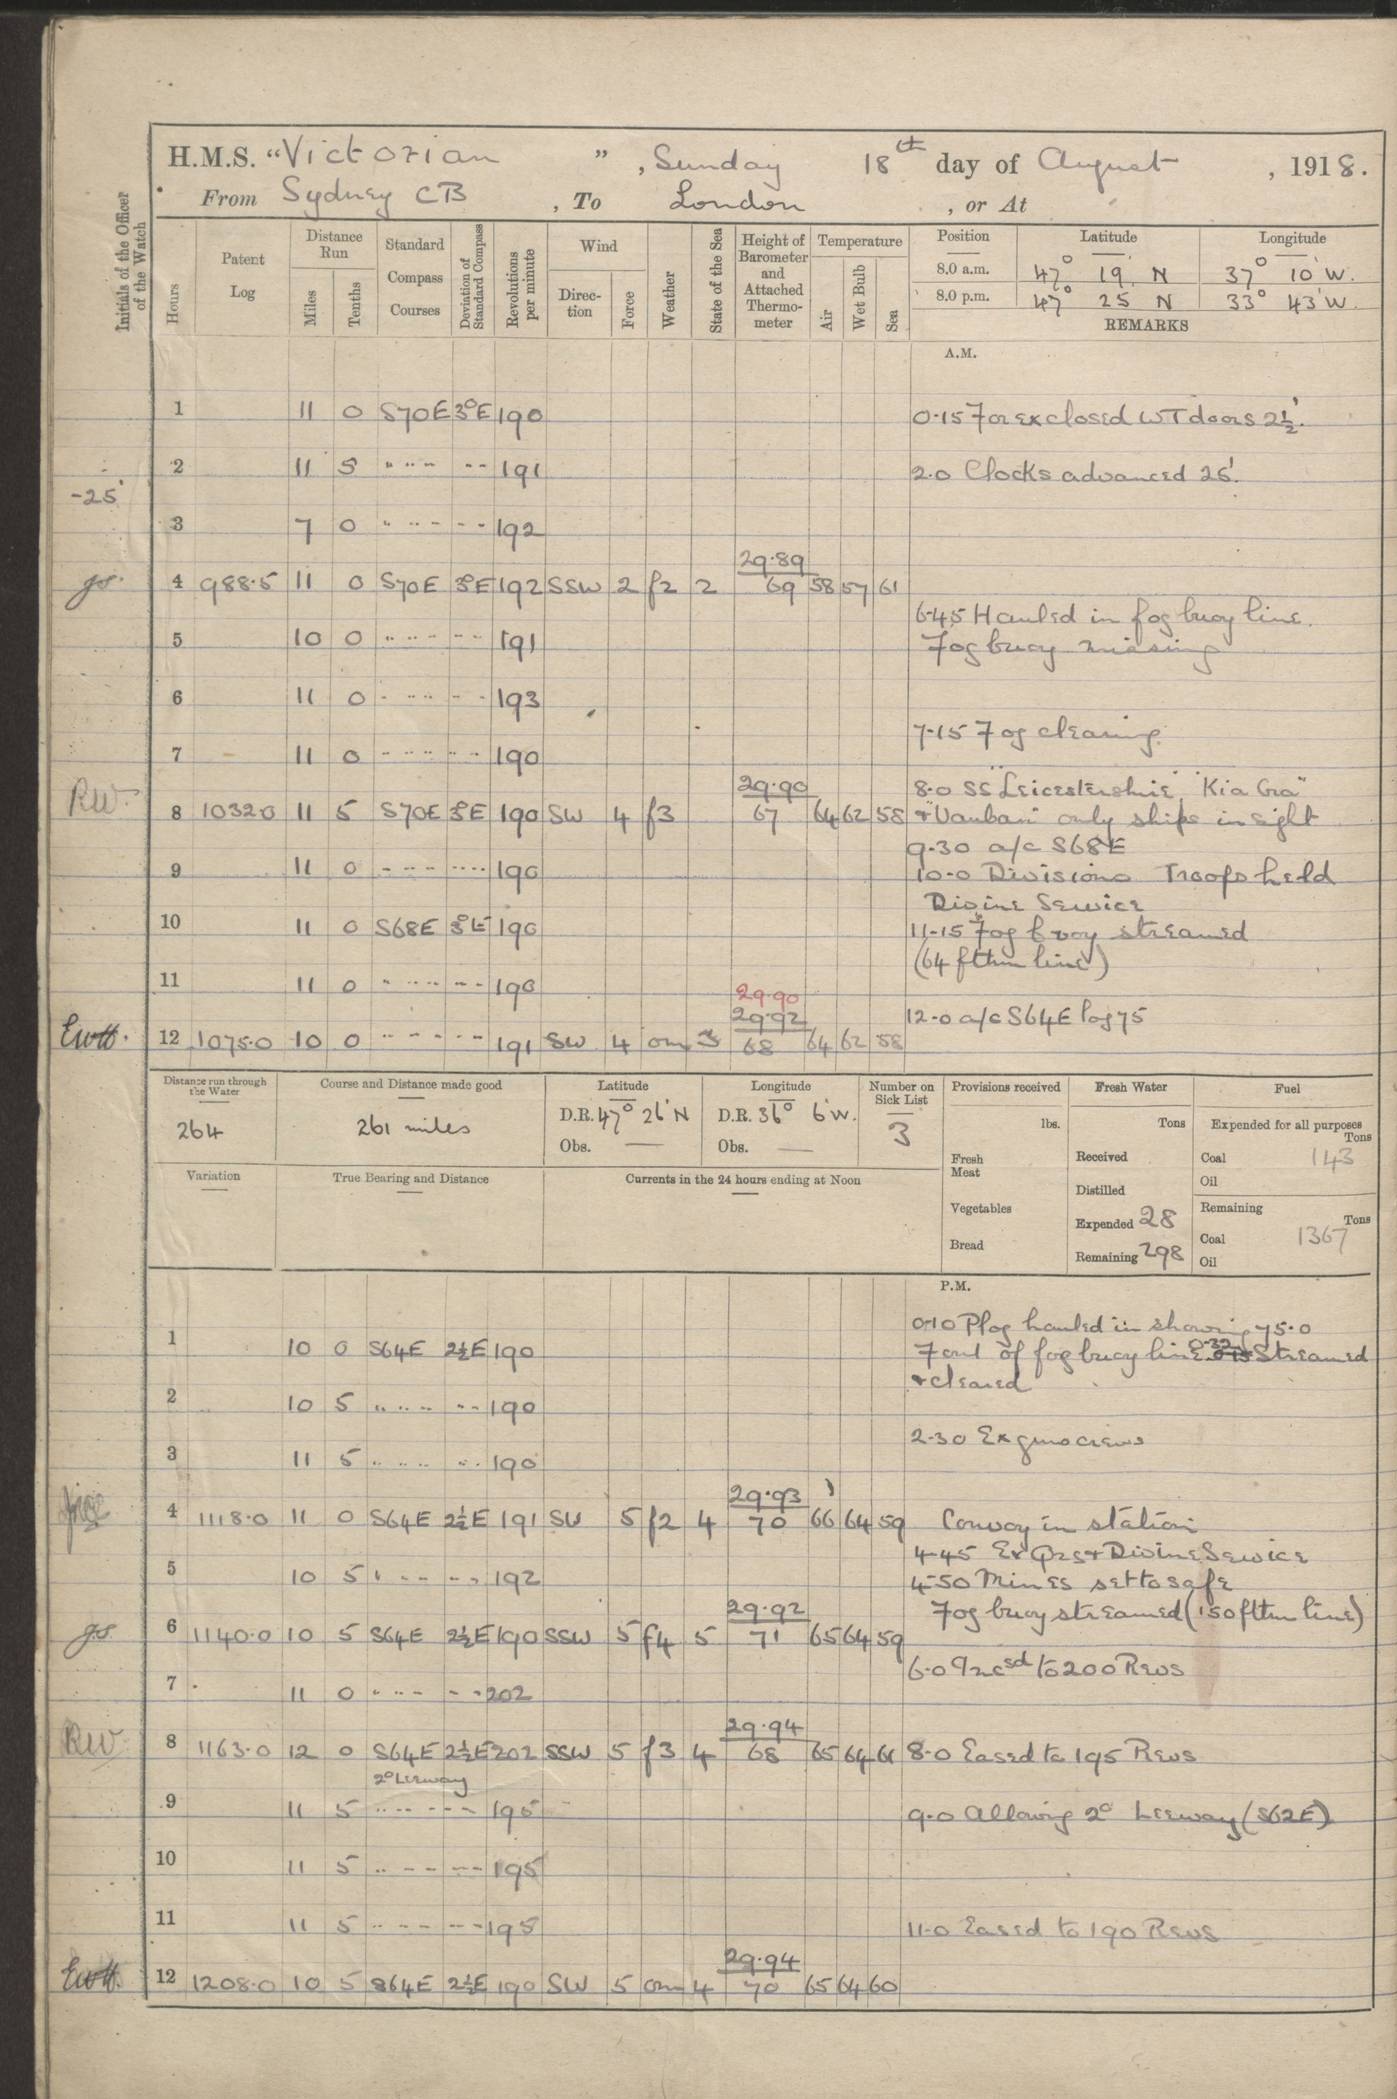 H.M.S. "Victorian ", Sunday 18th day of August, 1918.
From Sydney CB, To London, or At
Initials of the Officer of the Watch
Hours Patent Log Distance Run Miles Tenths Standard Compass Courses Deviation of Standard Compass Revolutions per minute Wind Direction Force Weather State of the Sea Height of Barometer and Attached Thermometer Temperature Air Wet Bulb Sea
Position Latitude Longitude
8.0 a.m. 47° 19' N 37° 10' W.
8.0 p.m. 47° 25 N 33° 43' W.
REMARKS
A.M.
1 11 0 S70E 3°E 190 0.15 For ex closed WT doors 2½'.
2 11 5 " " " " " 191 2.0 Clocks advanced 25'.
-25'
3 7 0 " " " " " 192
29.89
4 988.5 11 0 S70E 3°E 192 SSW 2 f2 2 69 58 57 61
6.45 Hauled in fog buoy line.
5 10 0 " " " " " 191 Fog buoy missing
6 11 0 " " " " " 193
7.15 Fog clearing.
7 11 0 " " " " " 190
29.90 8.0 SS "Leicestershire" "Kia Ora"
RW. 8 1032.0 11 5 S70E 3°E 190 SW 4 f3 67 64 62 58 + "Vauban" only ships in sight
9.30 a/c S68E
9 11 0 " " " " " 190 10.0 Divisions Troops held
Divine Service
10 11 0 S68E 3°E 190 11.15 Fog buoy streamed
(64 fthm line)
11 11 0 " " " " " 190
29.90
29.92 12.0 a/c S64E log 75
12 1075.0 10 0 " " " " " 191 SW 4 om 3 68 64 62 58
Distance run through the Water Course and Distance made good Latitude Longitude Number on Sick List Provisions received Fresh Water Fuel
264 261 miles D.R. 47° 26' N D.R. 36° 6' W. 3 lbs. Tons Expended for all purposes Tons
Obs. — Obs. — Fresh Meat Received Coal 143
Oil
Variation True Bearing and Distance Currents in the 24 hours ending at Noon Distilled
Vegetables Expended 28 Remaining Tons
Bread Remaining 298 Coal 1367
Oil
P.M.
0.10 P log hauled in showing 75.0
1 10 0 S64E 2½E 190 Foul of fog buoy line. 0.32 Streamed
+ cleared
2 10 5 " " " " " 190
2.30 Ex guns crews
3 11 5 " " " " " 190
29.93
4 1118.0 11 0 S64E 2½E 191 SW 5 f2 4 70 66 64 59 Convoy in station
4.45 Ex Qrs + Divine Service
5 10 5 " " " " " 192 4.50 Mines set to safe
29.92 Fog buoy streamed (150 fthm line)
6 1140.0 10 5 S64E 2½E 190 SSW 5 f4 5 71 65 64 59
6.0 Incsd to 200 Revs
7 11 0 " " " " " 202
29.94
RW 8 1163.0 12 0 S64E 2½E 202 SSW 5 f3 4 68 65 64 61 8.0 Eased to 195 Revs
2° Leeway
9 11 5 " " " " " 195 9.0 Allowing 2° Leeway (S62E)
10 11 5 " " " " " 195
11 11 5 " " " " " 195 11.0 Eased to 190 Revs
29.94
12 1208.0 10 5 S64E 2½E 190 SW 5 om 4 70 65 64 60